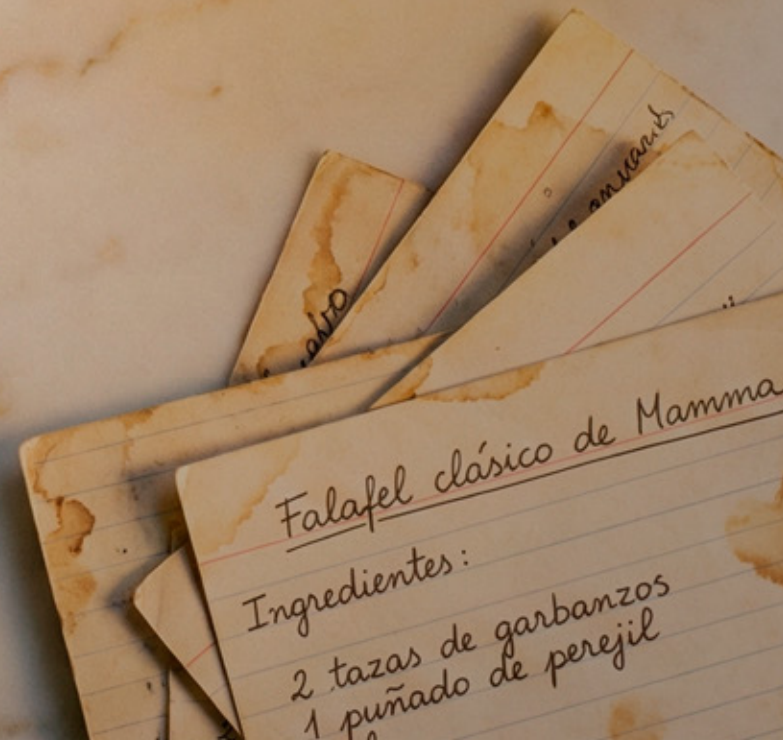 Falafel clásico de Mamma
Ingredientes:
2 tazas de garbanzos
1 puñado de perejil